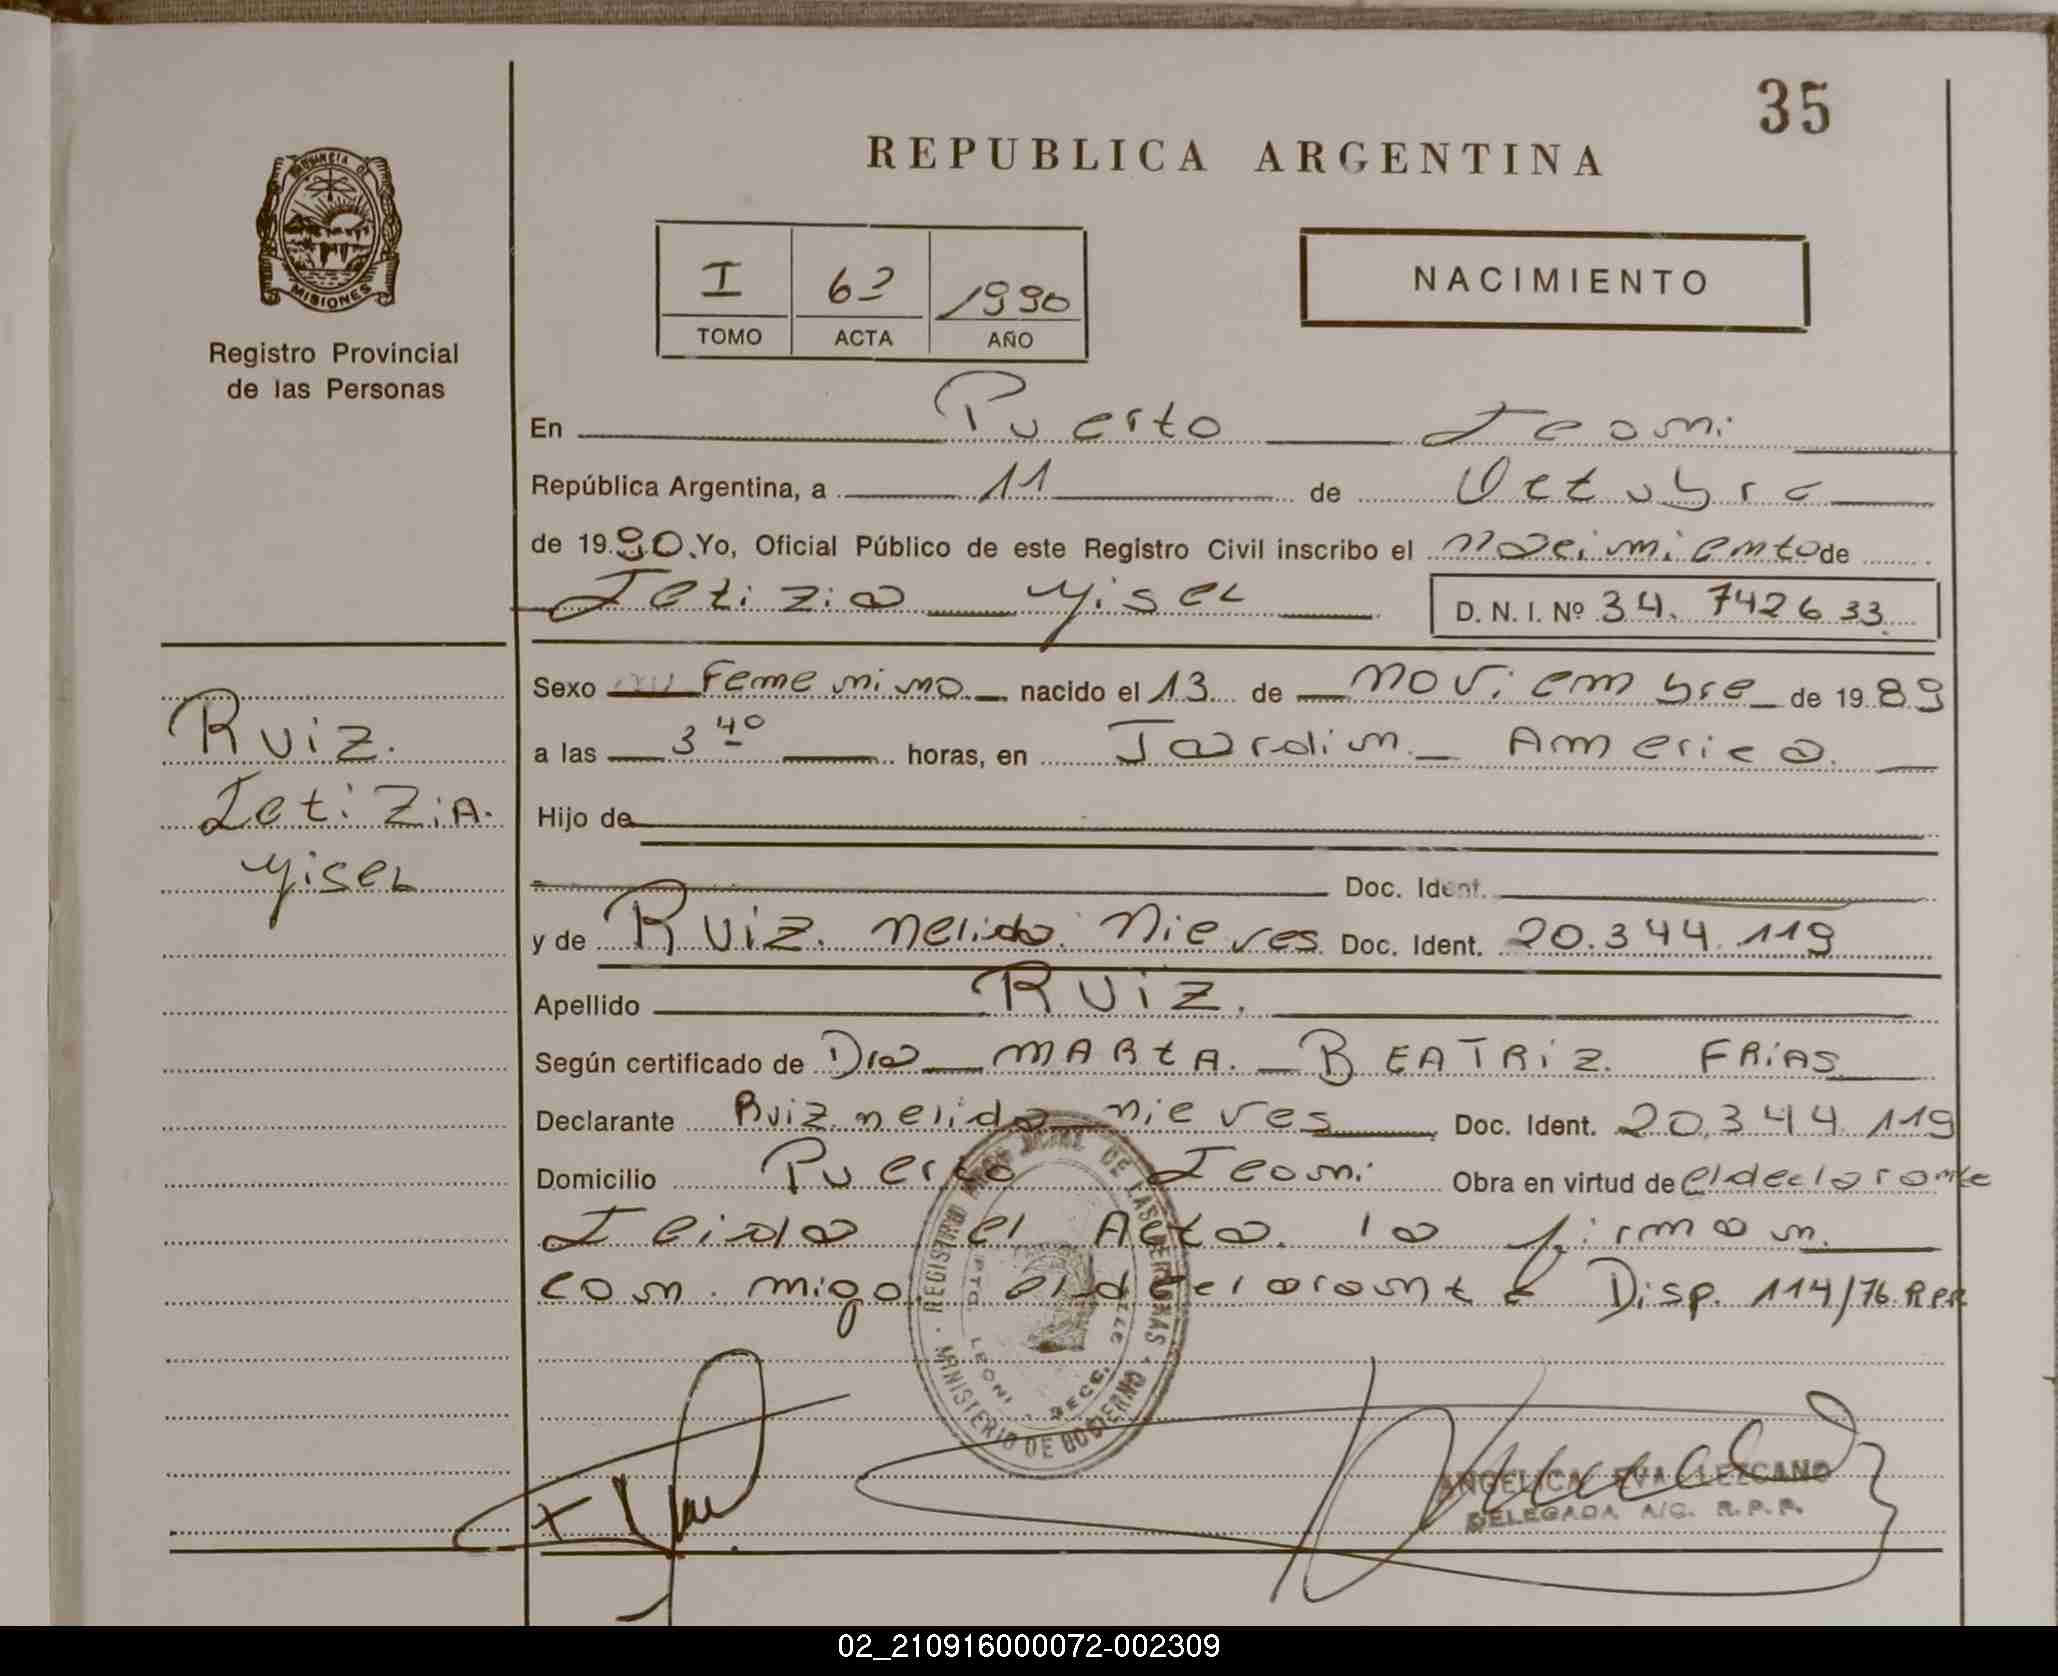 35
REPUBLICA ARGENTINA
PROVINCIA DE
MISIONES
Registro Provincial
de las Personas
I 62 1990
TOMO ACTA AÑO
NACIMIENTO
En Puerto Leoni
República Argentina, a 11 de Octubre
de 1990. Yo, Oficial Público de este Registro Civil inscribo el nacimiento de
Letizia Yisel D. N. I. Nº 34.742633
Sexo Femenino nacido el 13 de Noviembre de 1989
a las 3 40 horas, en Jardin America.
Hijo de
Doc. Ident.
y de Ruiz. Nelida Nieves Doc. Ident. 20.344.119
Apellido Ruiz.
Según certificado de Dra MARtA. BEATRiZ. FRiAS
Declarante Ruiz nelida nieves Doc. Ident. 20.344.119
Domicilio Puerto Leoni Obra en virtud de el declarante
Leida el Acta. la firman.
con. migo el declarante Disp. 114/76 R.P.P.
Ruiz.
LetiZiA.
Yisel
REGISTRO PROVINCIAL DE LAS PERSONAS
MINISTERIO DE GOBIERNO
PTO. LEONI - SECC.
ANGELICA EVA LEZCANO
DELEGADA A/C. R.P.P.
02_210916000072-002309